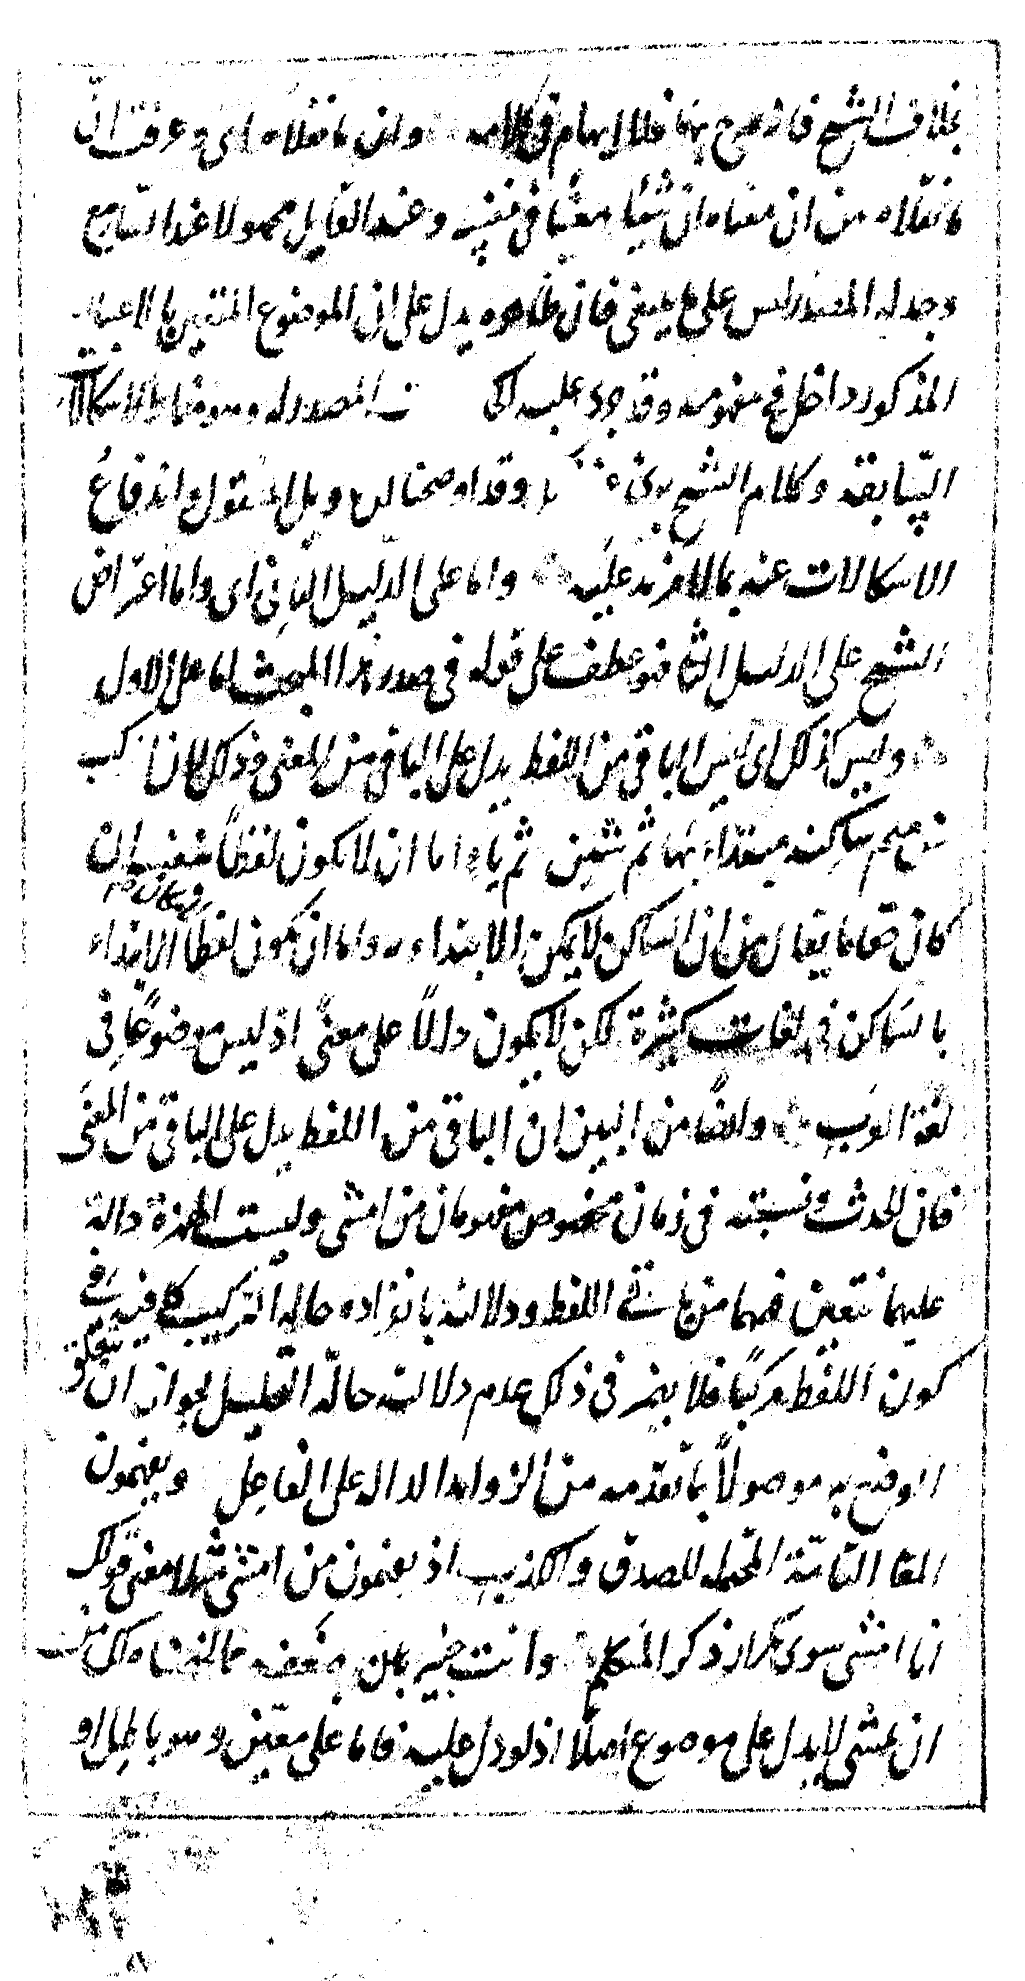 بخلاف الشيخ فانه صرح بهما فلا ابهام في كلامه وان ما نقلاه اى وعرفت ان
ما نقلاه من ان معناه ان شيئا معينا في نفسه وعند القايل مجهولا عند السامع
وجد له المصدر ليس على ما ينبغى فان ظاهره يدل على ان الموضوع المتعين بالاعتبار
المذكور داخل في مفهومه وقد جرى عليه المصدر له وهو منشأ الاشكالات
السابقة وكلام الشيخ برئ وقد اوضحنا لك دليل المنقول واندفاع
الاشكالات عنه بما لا مزيد عليه واما على الدليل الثانى اى واما اعتراض
الشيخ على الدليل الثانى فهو عطف على قوله في صدر هذا المبحث اما على الاول
وليس كذلك اى ليس الباقى من اللفظ يدل على الباقى من المعنى وذلك لانا
من ميم ساكنة مبتداء بها ثم شين ثم ياء اما ان لا يكون لفظا فنفسه ان
كان حقا ما يقال من ان الساكن لا يمكن الابتداء به واما ان يكون لفظا الابتداء
بالساكن في لغات كثيرة لكن لا يكون دالاً على معنًى اذ ليس موضوعًا في
لغة العرب وايضًا من البين ان الباقى من اللفظ يدل على الباقى من المعنى
فان الحدث ونسبته في زمان مخصوص مفهومان من امشى وليست الهمزة دالة
عليهما فتعين فهمهما من باقى اللفظ ودلالته بانفراده حالة التركيب كافية في
كون اللفظ مركبًا فلا يضر في ذلك عدم دلالته حالة التحليل لجواز ان يتعلق
الوضع به موصولاً بما تقدمه من الزوايد الدالة على الفاعل ويفهمون
المعانى التامة المحتملة للصدق والكذب اذ يفهمون من امشى مثلا معنى قولك
انا امشى سوى تكرار ذكر المتكلم وانت خبير بان به ضعفه مما لخصناه لك من
ان يمشى لا يدل على موضوع اصلًا اذ لو دل عليه فاما على معين وهو باطل او